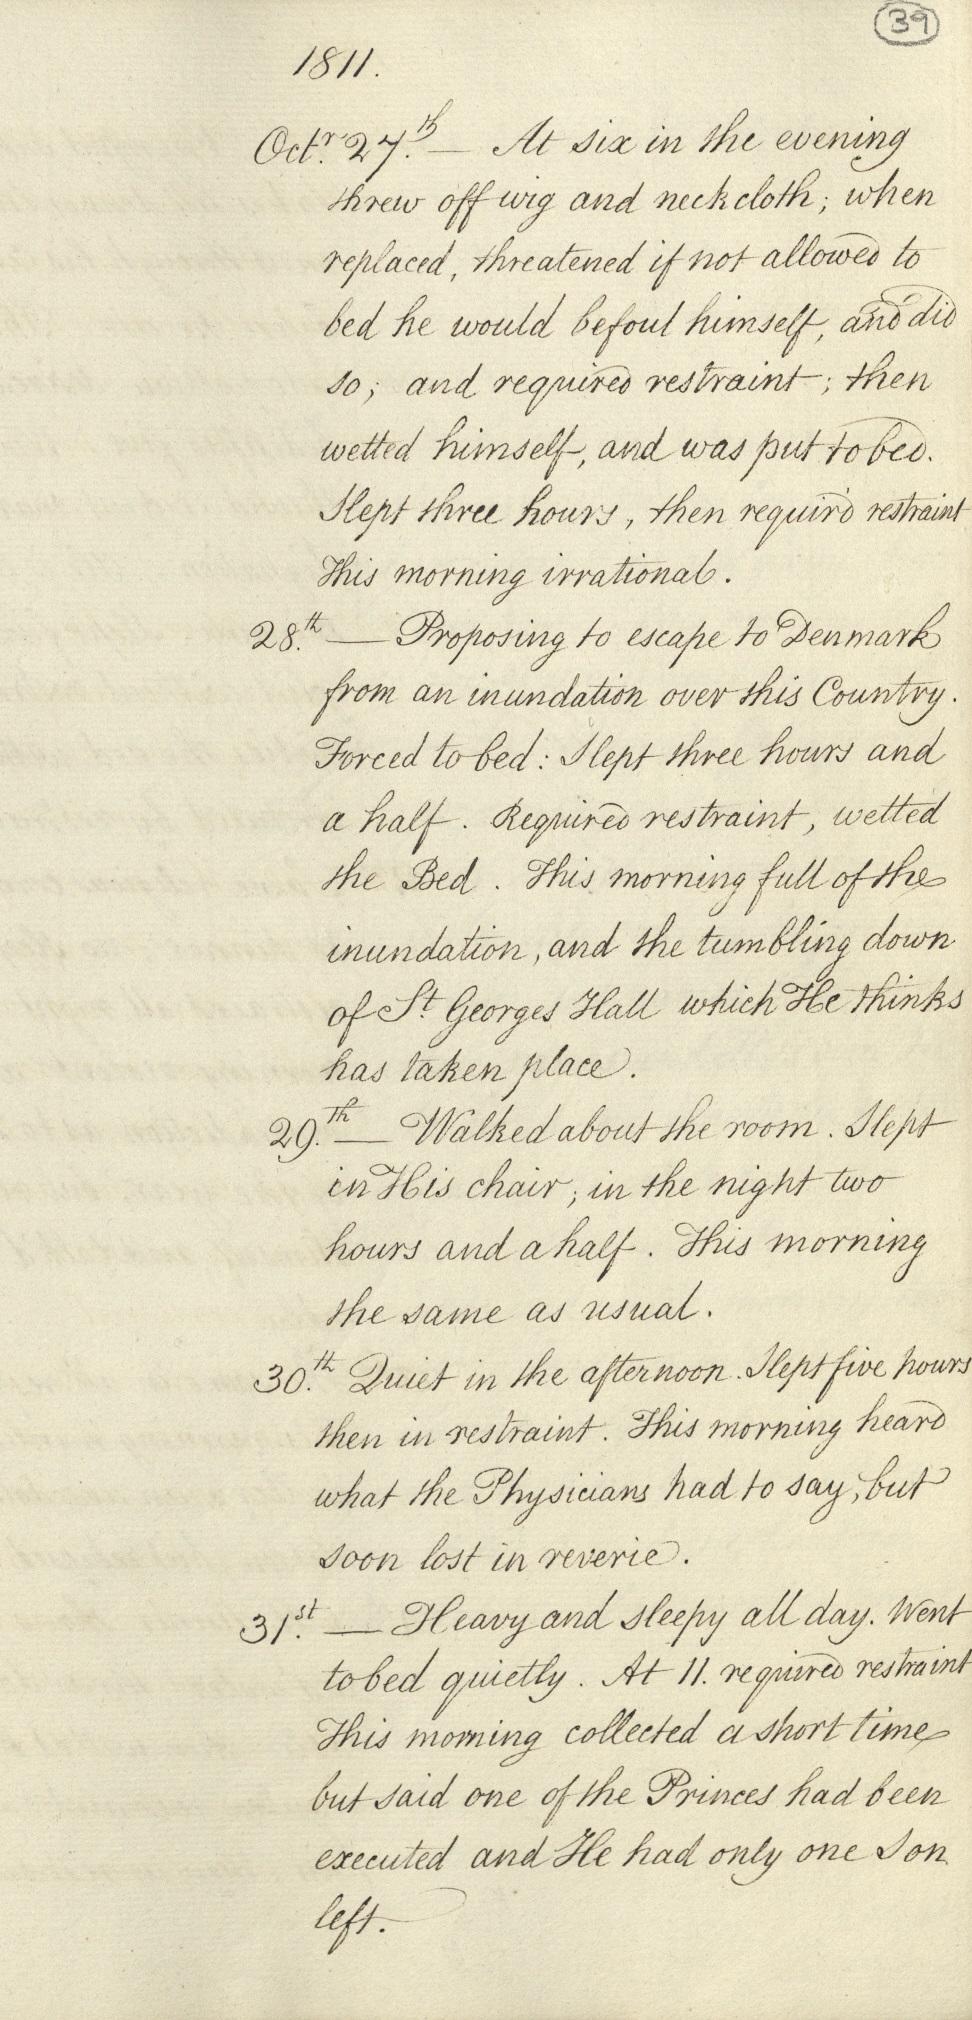 39
1811.
Octr. 27.th — At six in the evening
threw off wig and neckcloth; when
replaced, threatened if not allowed to
bed he would befoul himself, and did
so; and required restraint; then
wetted himself, and was put to bed.
Slept three hours, then requir'd restraint
This morning irrational.
28.th — Proposing to escape to Denmark
from an inundation over this Country.
Forced to bed: Slept three hours and
a half. Required restraint, wetted
the Bed. This morning full of the
inundation, and the tumbling down
of St. Georges Hall which He thinks
has taken place.
29.th — Walked about the room. Slept
in His chair; in the night two
hours and a half. This morning
the same as usual.
30.th Quiet in the afternoon. Slept five hours
then in restraint. This morning heard
what the Physicians had to say, but
soon lost in reverie.
31.st — Heavy and sleepy all day. Went
to bed quietly. At 11. required restraint
This morning collected a short time
but said one of the Princes had been
executed and He had only one Son
left.